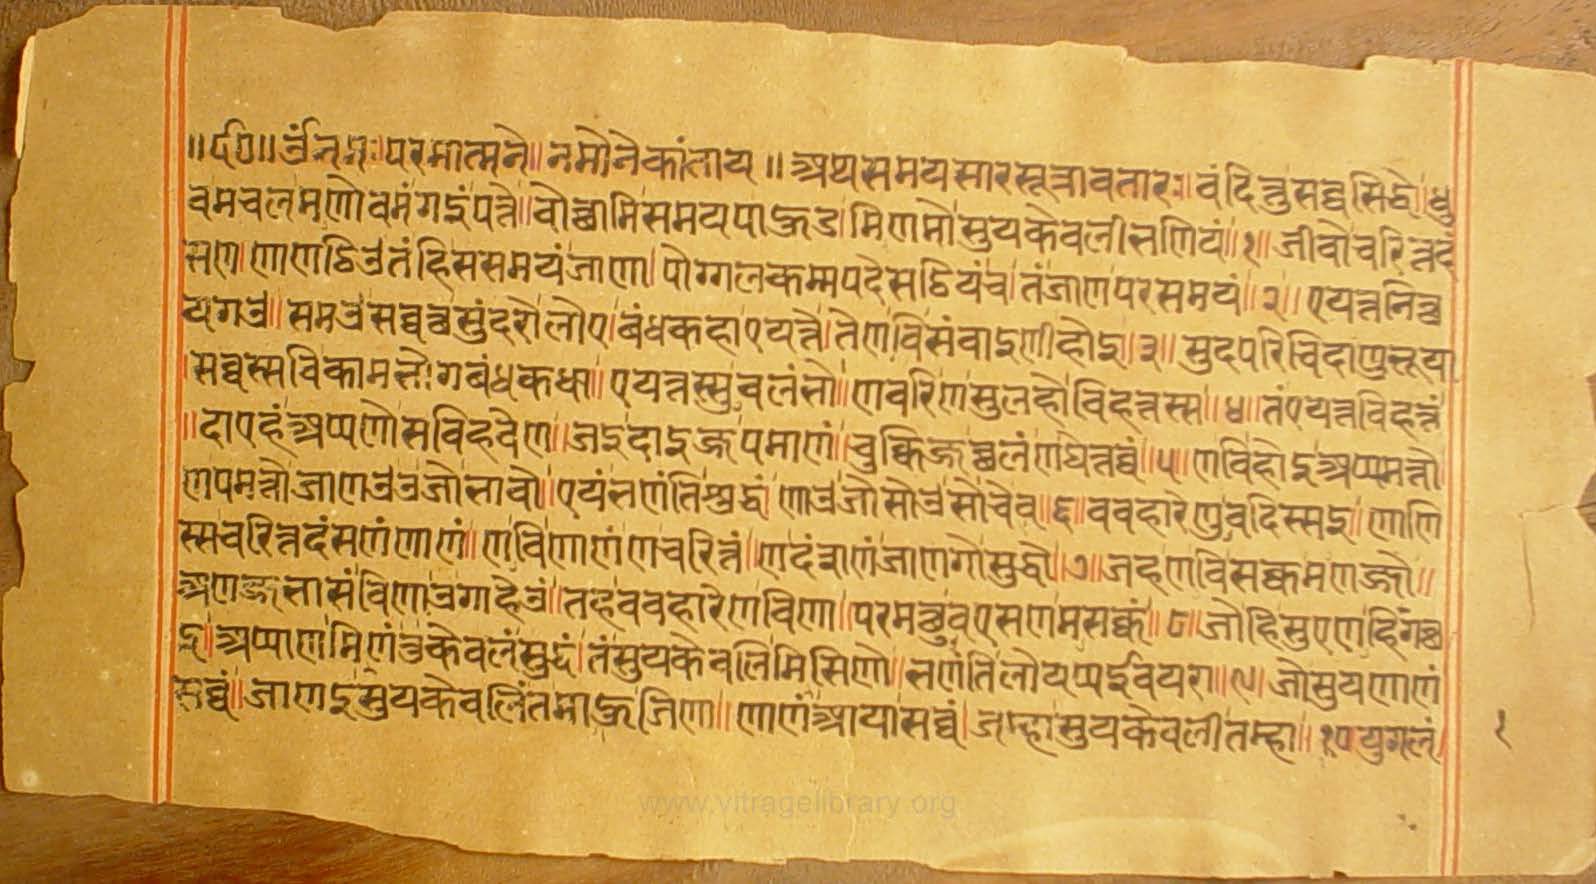 ॥ ६०॥ ॐ नमः परमात्मने॥ नमोनेकांताय ॥ अथसमयसारसूत्रावतारः॥ वंदित्तुसव्वसिद्धे॥ धु
वमचलमणोवमंगइंपत्ते॥ वोच्छामिसमयपाहुड।मिणमोसुयकेवलीभणियं॥ १॥ जीवोचरित्तदं
सण। णाणठिउतंहिससमयंजाण। पोग्गलकम्मपदेसठियंच। तंजाणपरसमयं॥ २॥ एयत्तनिच्च
यगउ॥ समउसव्वच्छसुंदरोलोए। बंधकहाएयत्ते। तेणविसंवाइणीहोइ॥ ३॥ सुदपरिचिदाणुभूया
।सव्वस्सविकामभोगबंधकधा॥ एयत्तस्सुवलंभो॥ णवरिणसुलहोविहत्तस्स॥ ४॥ तंएयत्तविहत्तं
॥दाएहंअप्पणोसविहवेण॥ जइदाइज्जपमाणं॥ चुक्किज्जछलंणघेत्तव्वं॥ ५॥ णविहोइअप्पमत्तो
णपमत्तोजाणउउजोभावो॥ एयंभणंतिसुद्धं णाउजोसोउसोचेव॥ ६॥ ववहारेणुवदिस्सइ॥ णाणि
स्सचरित्तदंसणंणाणं॥ णविणाणंणचरित्तं॥ णदंसणंजाणगोसुद्धो॥ ७॥ जहणविसक्कमणज्जो॥
अणज्जभासंविणाउगाहेउं॥ तहववहारेणविणा॥ परमच्छुवएसणमसक्कं॥ ८॥ जोहिसुएणहिगच्छ
इ। अप्पाणमिणंतुकेवलंसुद्धं। तंसुयकेवलिमिसिणो॥ भणंतिलोयप्पईवयरा॥ ९॥ जोसुयणाणं
सव्वं॥ जाणइसुयकेवलिंतमाहुजिणा॥ णाणंआयासव्वं। जम्हासुयकेवलीतम्हा॥ १० युगलं
१
www.vitragelibrary.org